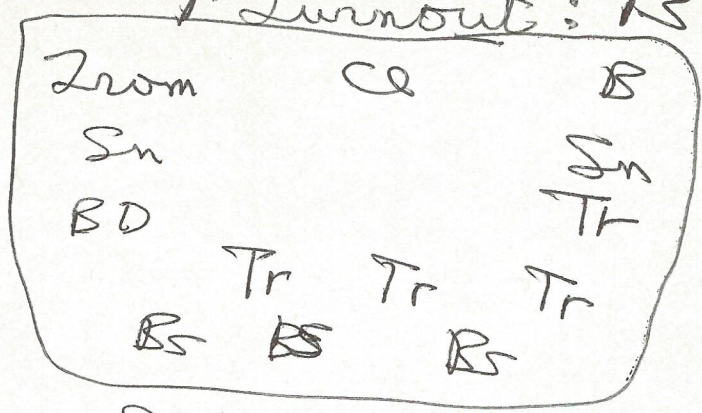 Turnout: B
Trom Cl B
Sn Sn
BD Tr
Tr Tr Tr
Bs BS Bs